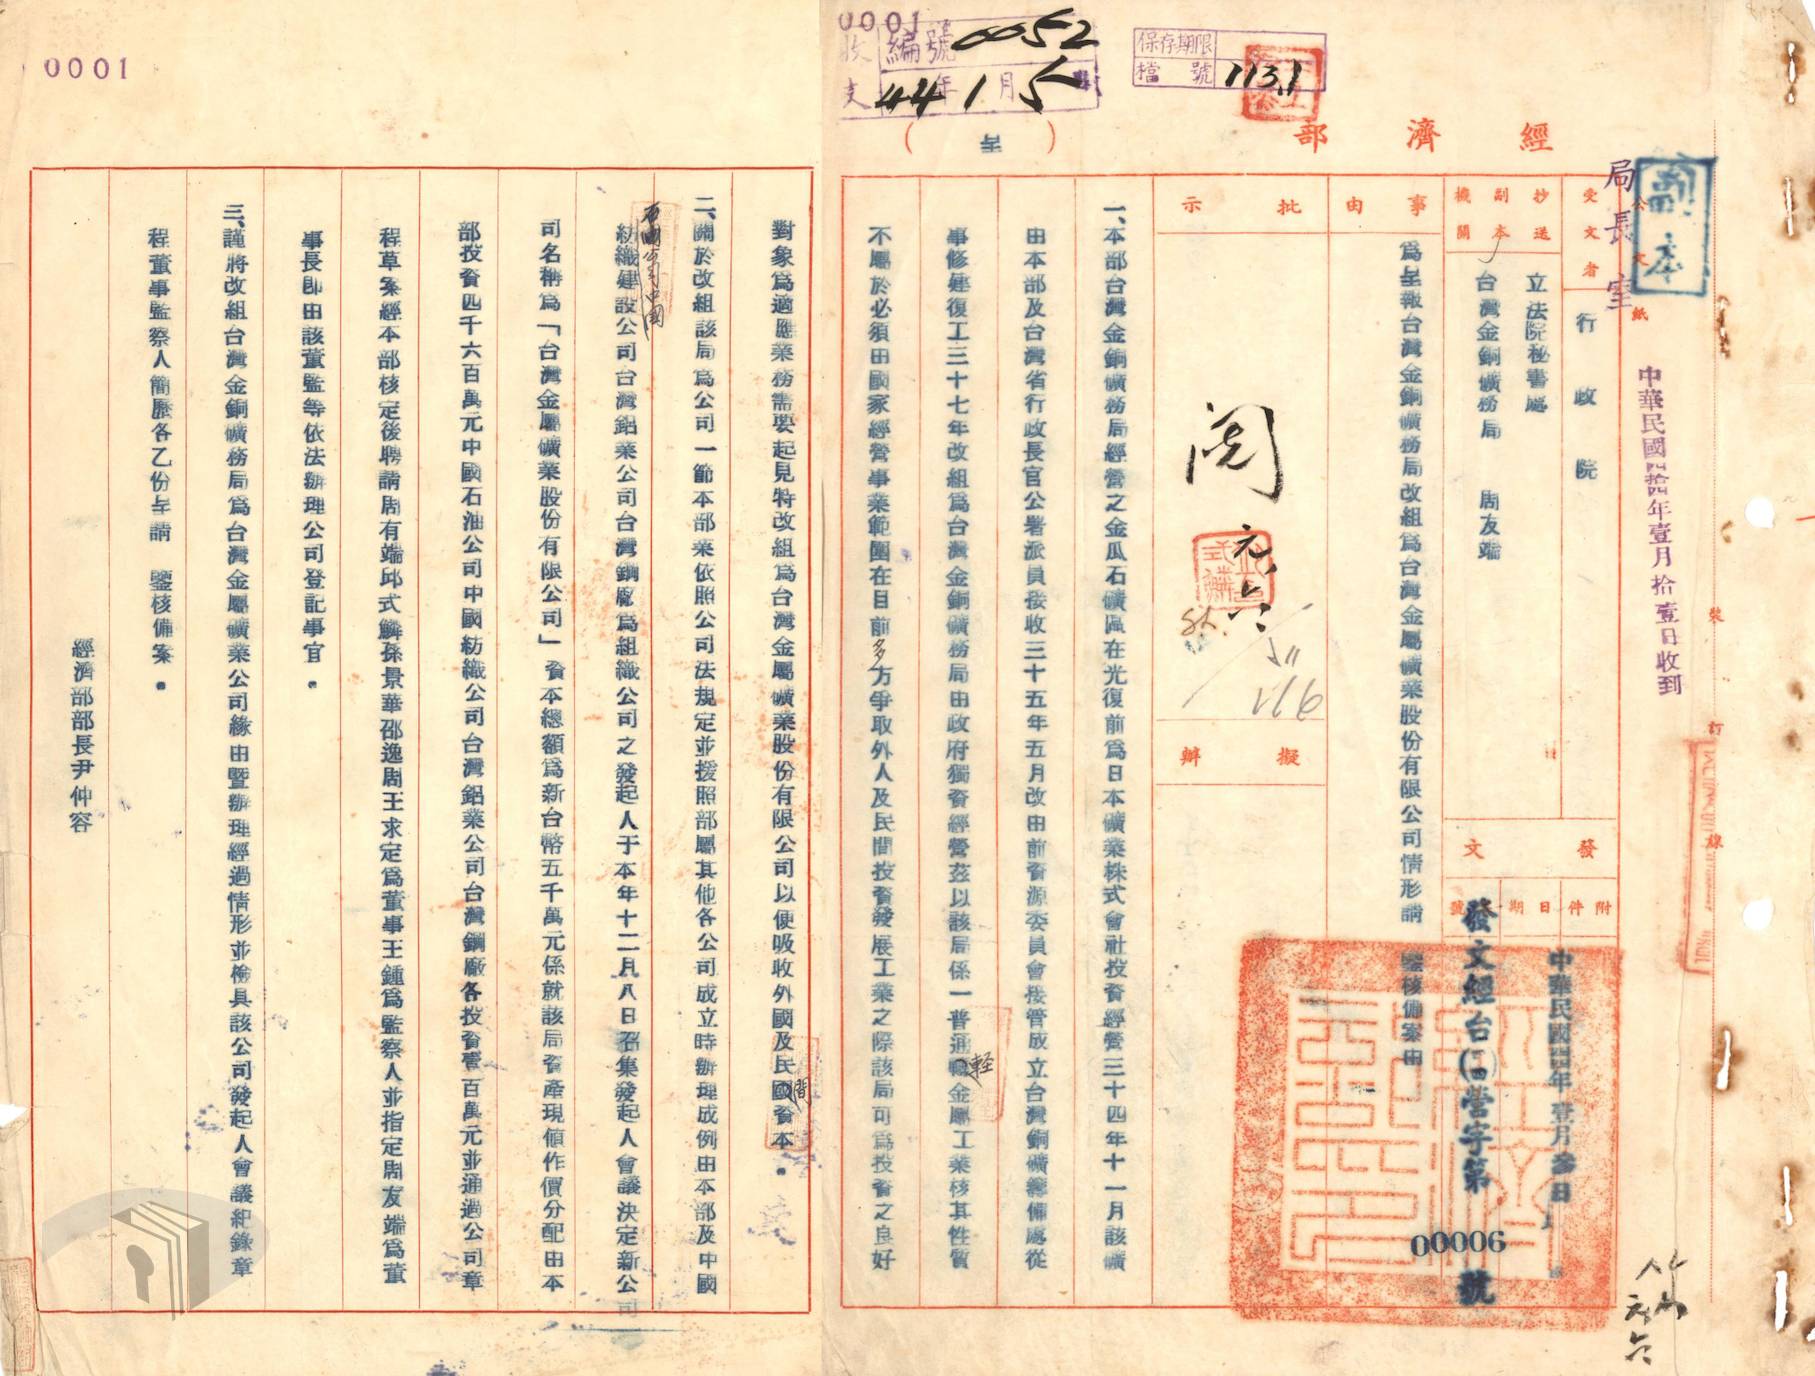 0001
收文
編號 0052
44年1月5
保存期限
檔號 113.1
經濟部
（呈）
副本
局長室
公文紙
中華民國四拾四年壹月拾壹日收到
裝
訂
線
受文者
行政院
抄送副本機關
立法院秘書處
台灣金銅礦務局 周友端
發文
附件
日期
號
中華民國四四年壹月參日
發文經台(四)營字第00006號
事由
為呈報台灣金銅礦務局改組為台灣金屬礦業股份有限公司情形請 鑒核備案由
批示
閱
元六
擬辦
一、本部台灣金銅礦務局經營之金瓜石礦區在光復前為日本礦業株式會社投資經營三十四年十一月該礦
由本部及台灣省行政長官公署派員接收三十五年五月改由前資源委員會接管成立台灣銅礦總備處從
事修建復工三十七年改組為台灣金銅礦務局由政府獨資經營茲以該局係一普通輕金屬工業核其性質
不屬於必須由國家經營事業範圍在目前多方爭取外人及民間投資發展工業之際該局可為投資之良好
0001
對象為適應業務需要起見特改組為台灣金屬礦業股份有限公司以便吸收外國及民間資本。
二、關於改組該局為公司一節本部業依照公司法規定並援照部屬其他各公司成立時辦理成例由本部及中國
石油公司中國
紡織建設公司台灣鋁業公司台灣鋼廠為組織公司之發起人于本年十二月八日召集發起人會議決定新公司
司名稱為「台灣金屬礦業股份有限公司」資本總額為新台幣五千萬元係就該局資產現值作價分配由本
部投資四千六百萬元中國石油公司中國紡織公司台灣鋁業公司台灣鋼廠各投資壹百萬元並通過公司章
程草案經本部核定後聘請周有端邱式麟孫景華邵逸周王求定為董事王鍾為監察人並指定周友端為董
事長即由該董監等依法辦理公司登記事宜。
三、謹將改組台灣金銅礦務局為台灣金屬礦業公司緣由暨辦理經過情形並檢具該公司發起人會議紀錄章
程董事監察人簡歷各乙份呈請 鑒核備案。
經濟部部長尹仲容